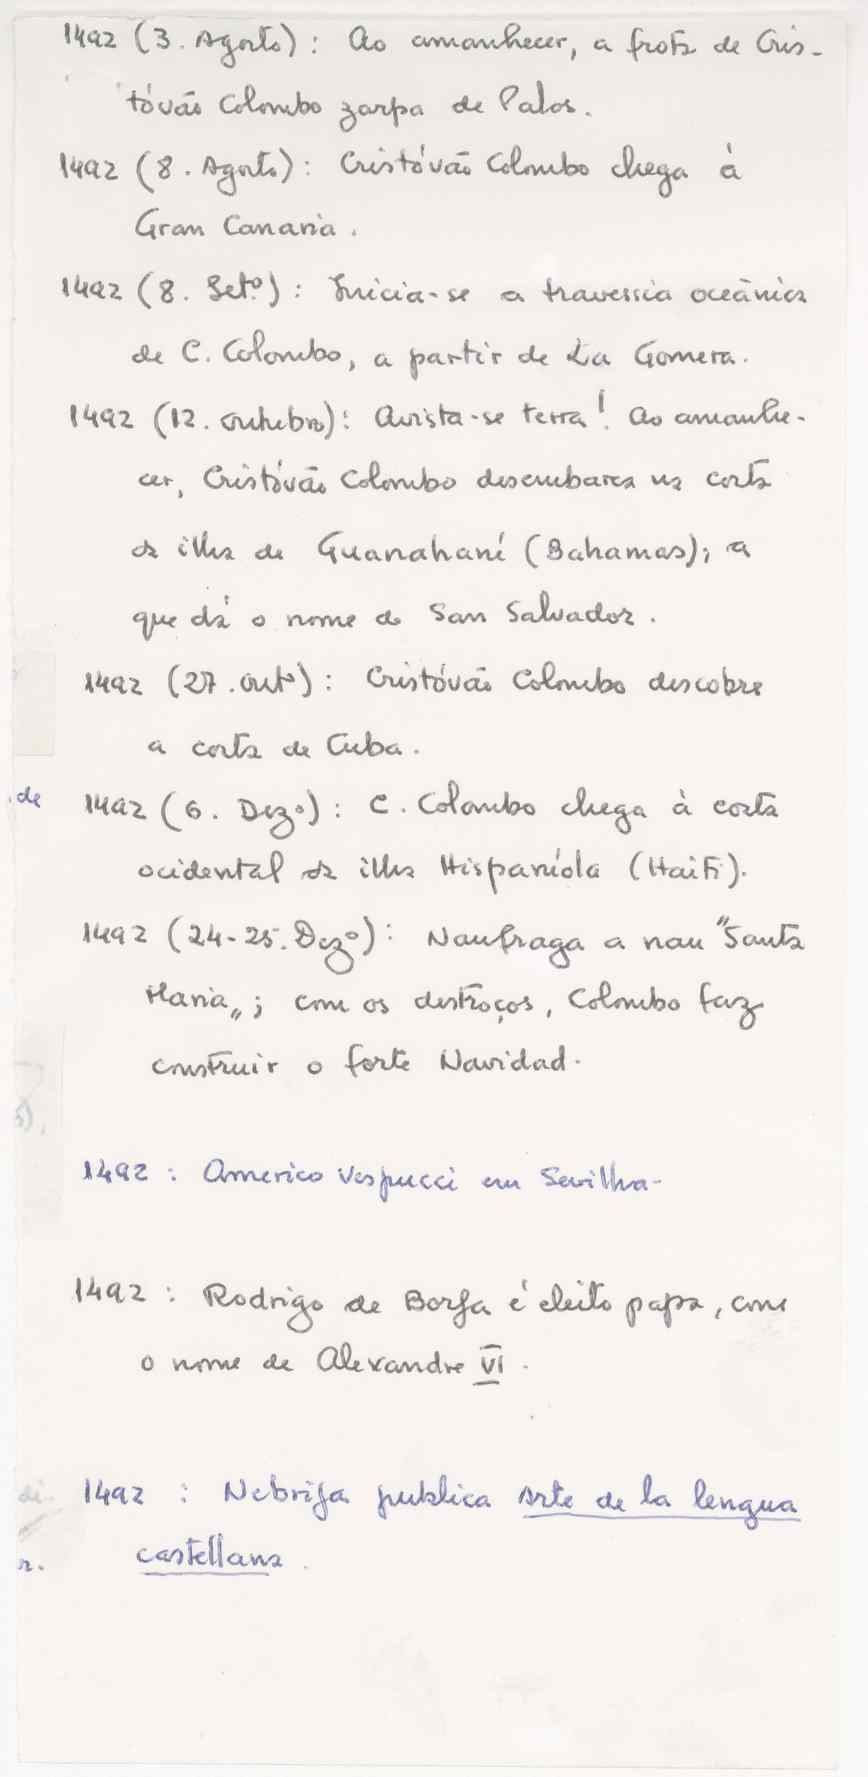 1492 (3. Agosto): Ao amanhecer, a frota de Cris-
tóvão Colombo zarpa de Palos.
1492 (8. Agosto): Cristóvão Colombo chega à
Gran Canaria.
1492 (8. Setº): Inicia-se a travessia oceânica
de C. Colombo, a partir de La Gomera.
1492 (12. Outubro): Avista-se terra! Ao amanhe-
cer, Cristóvão Colombo desembarca na costa
da ilha de Guanahaní (Bahamas); a
que dá o nome de San Salvador.
1492 (27. Outº): Cristóvão Colombo descobre
a costa de Cuba.
de
1492 (6. Dezº): C. Colombo chega à costa
ocidental da ilha Hispaníola (Haiti).
1492 (24-25. Dezº): Naufraga a nau "Santa
Maria„; com os destroços, Colombo faz
construir o forte Navidad.
1492: Americo Vespucci em Sevilha-
1492: Rodrigo de Borja é eleito papa, com
o nome de Alexandre VI.
1492: Nebrija publica Arte de la lengua
castellana.